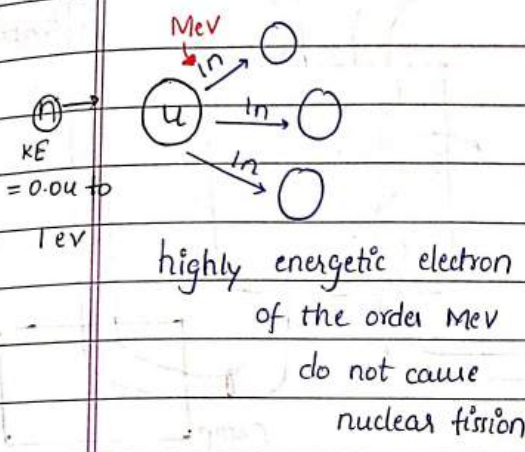 MeV
in
n
u
in
KE
in
= 0.04 to
1 ev
highly energetic electron
of the order MeV
do not cause
nuclear fission